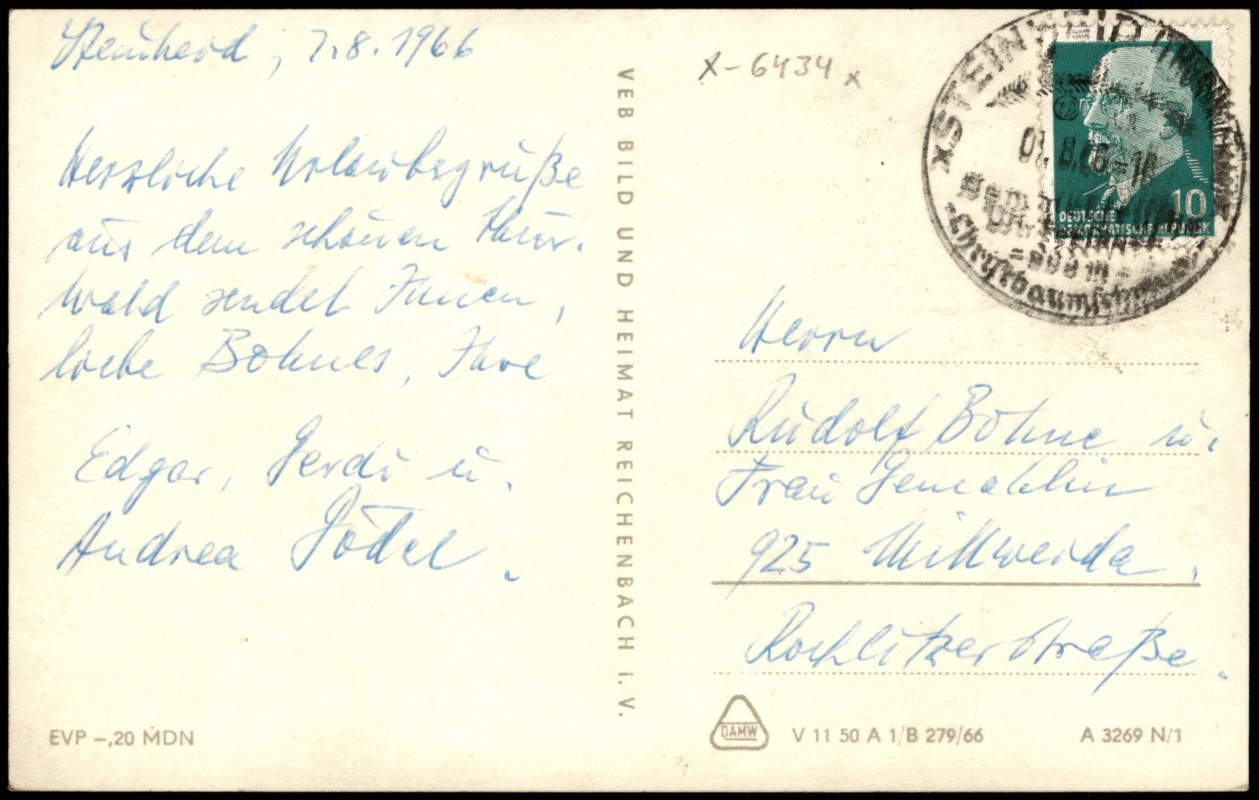 Steinheid, 7.8.1966
Herzliche Urlaubsgrüße
aus dem schönen Thür.
Wald sendet Ihnen,
liebe Bohnes, Ihre
Edgar, Gerdi u.
Andrea Gödel.
VEB BILD UND HEIMAT REICHENBACH I. V.
X-6434 x
x STEINHEID (THÜR
=
DEUTSCHE
DEMOKRATISCHE REPUBLIK
10
Herrn
Rudolf Bohne u.
Frau Gemahlin
925 Mittweida,
Rochlitzerstraße.
EVP –,20 MDN
DAMW
V 11 50 A 1/B 279/66
A 3269 N/1